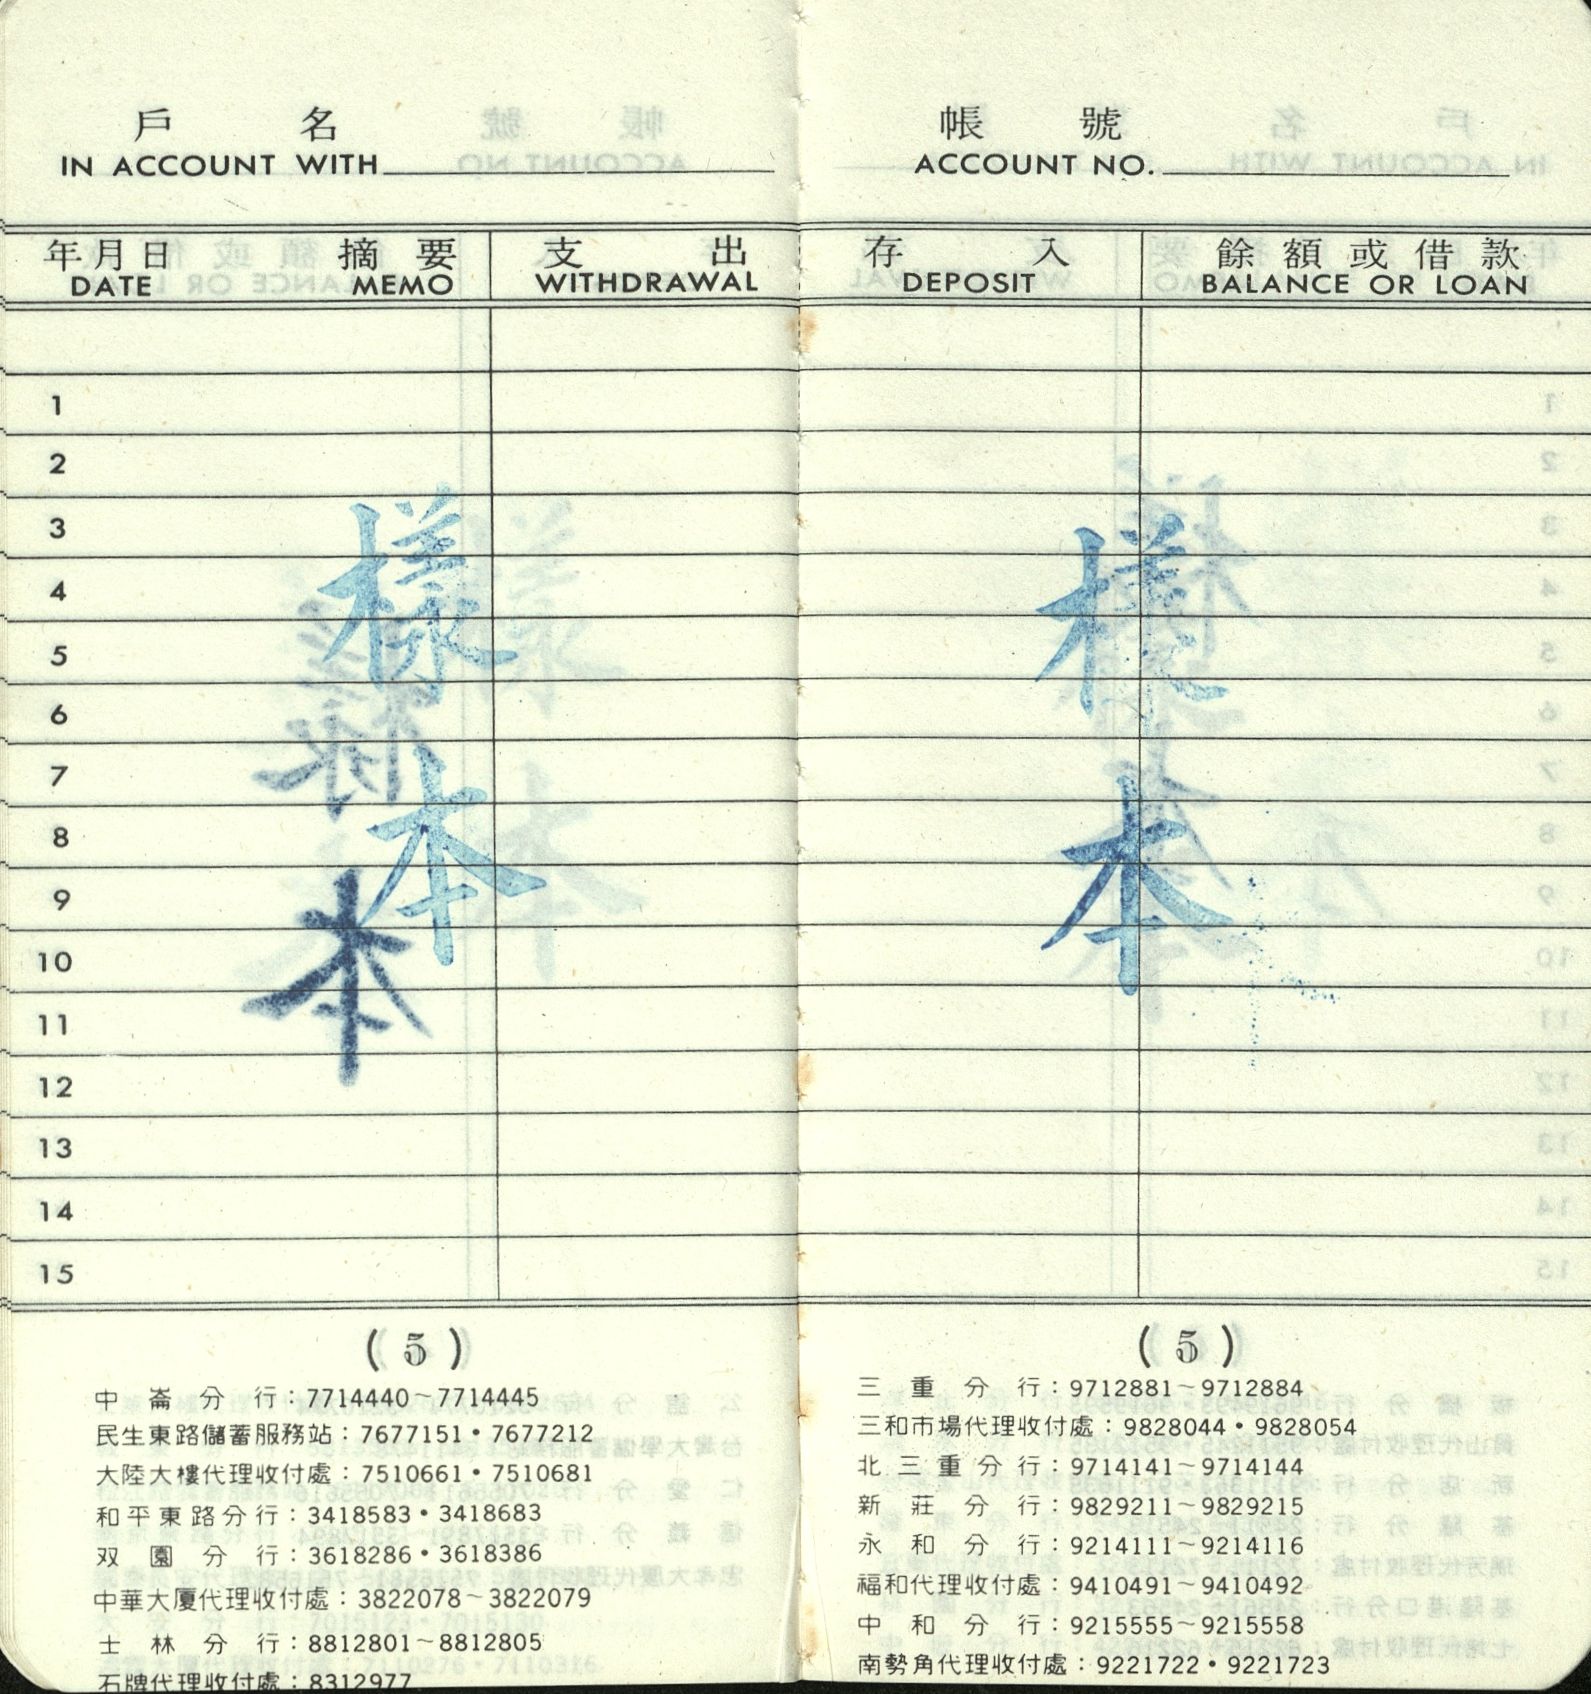 戶 名
IN ACCOUNT WITH
帳 號
ACCOUNT NO.
年月日 摘要 支出 存入 餘額或借款
DATE MEMO WITHDRAWAL DEPOSIT BALANCE OR LOAN
1
2
3
4
5
6
7
8
9
10
11
12
13
14
15
樣本
本
樣本
(5)
中崙分行：7714440～7714445
民生東路儲蓄服務站：7677151・7677212
大陸大樓代理收付處：7510661・7510681
和平東路分行：3418583・3418683
双園分行：3618286・3618386
中華大廈代理收付處：3822078～3822079
士林分行：8812801～8812805
石牌代理收付處：8312977
(5)
三重分行：9712881～9712884
三和市場代理收付處：9828044・9828054
北三重分行：9714141～9714144
新莊分行：9829211～9829215
永和分行：9214111～9214116
福和代理收付處：9410491～9410492
中和分行：9215555～9215558
南勢角代理收付處：9221722・9221723